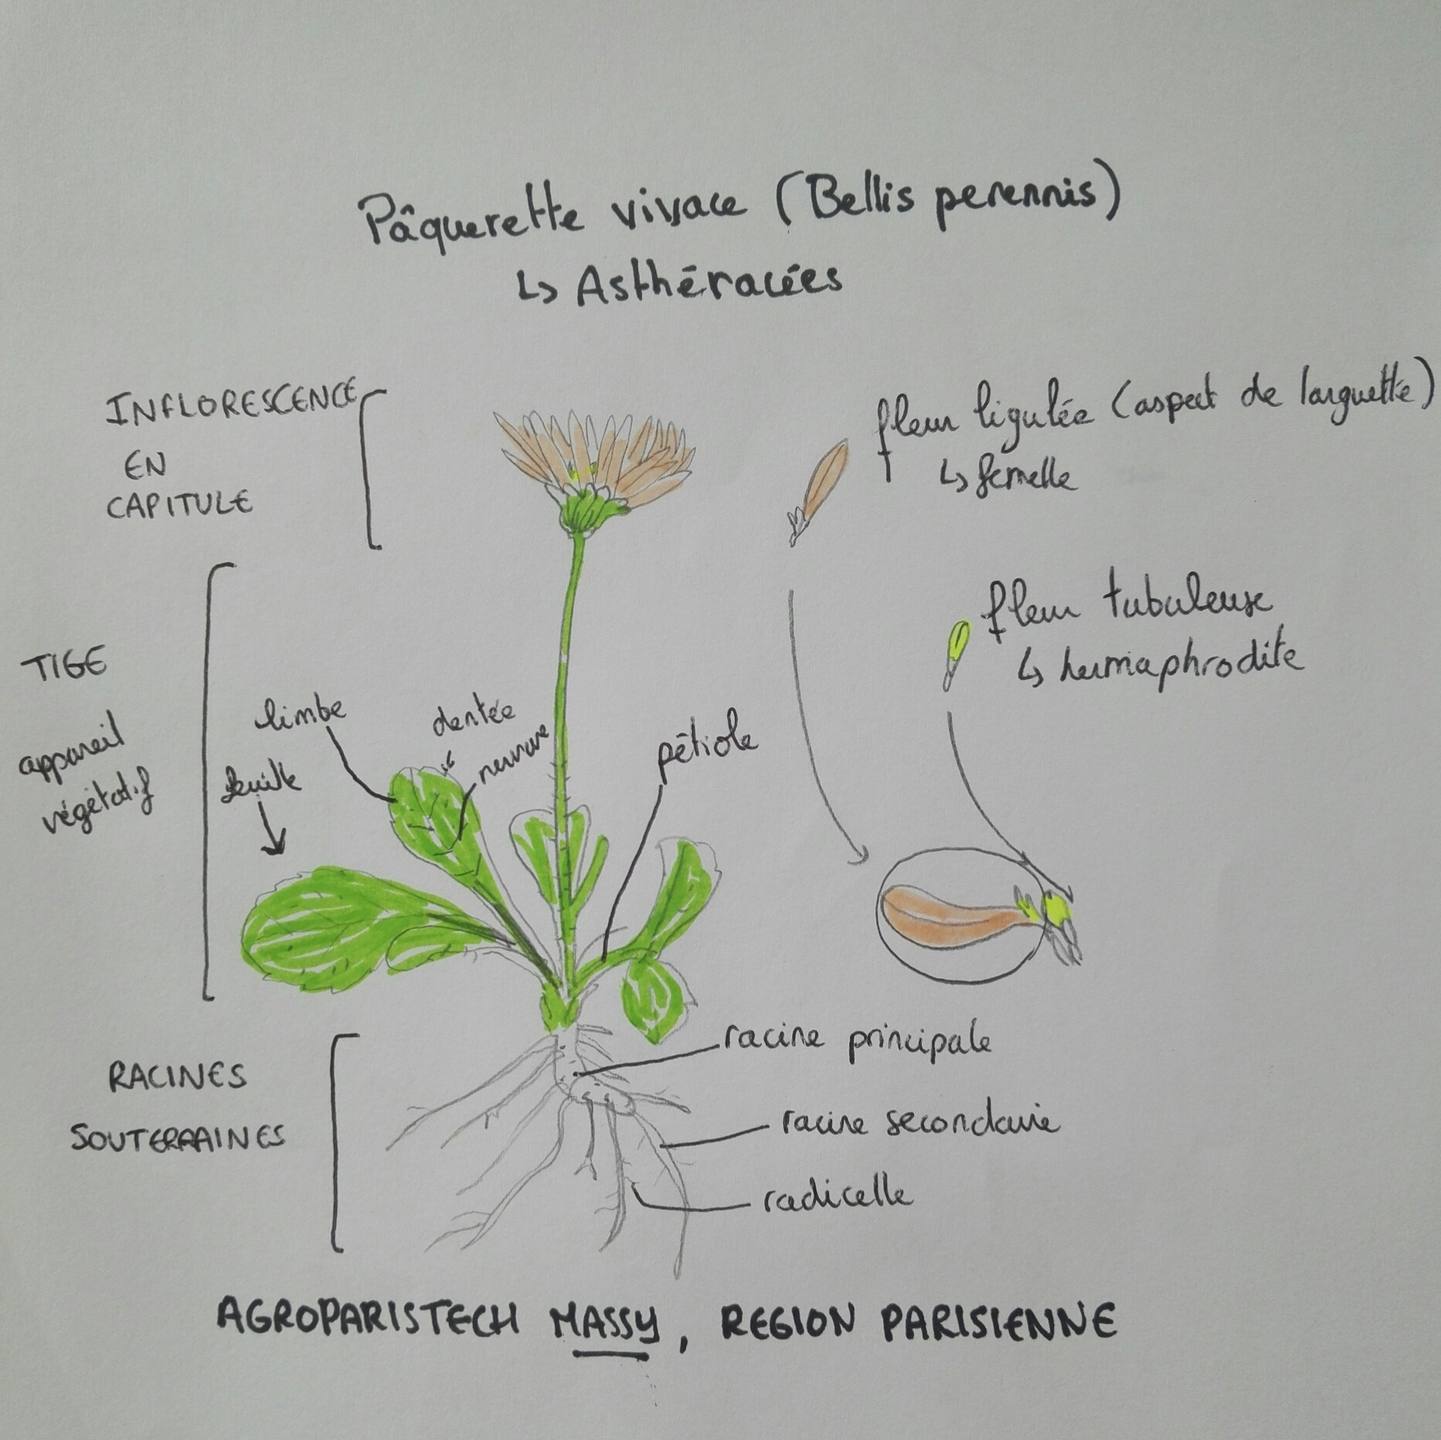 Pâquerette vivace (Bellis perennis)
↳ Asthéracées
INFLORESCENCE
EN
CAPITULE
fleur ligulée (aspect de languette)
↳ femelle
fleur tubuleuse
↳ hermaphrodite
TIGE
appareil
végétatif
limbe
feuille
dentée
nervure
pétiole
RACINES
SOUTERRAINES
racine principale
racine secondaire
radicelle
AGROPARISTECH MASSY, REGION PARISIENNE